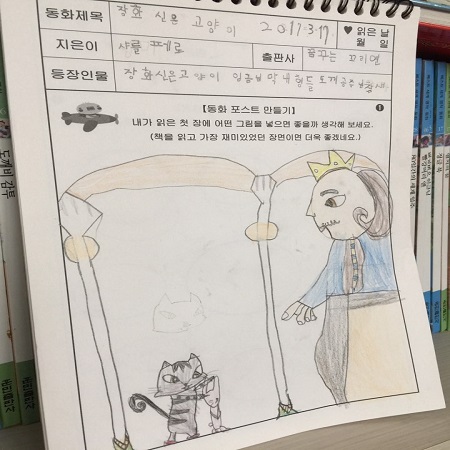 동화제목 장화 신은 고양이 2017.3.17. ♥ 읽은 날
월 일
지은이 샤를 페로 출판사 꿈꾸는 꼬리연
등장인물 장화신은고양이 임금님 막내 형들 토끼 공주
❶
[동화 포스트 만들기]
내가 읽은 첫 장에 어떤 그림을 넣으면 좋을까 생각해 보세요.
(책을 읽고 가장 재미있었던 장면이면 더욱 좋겠네요.)
도깨비 감투